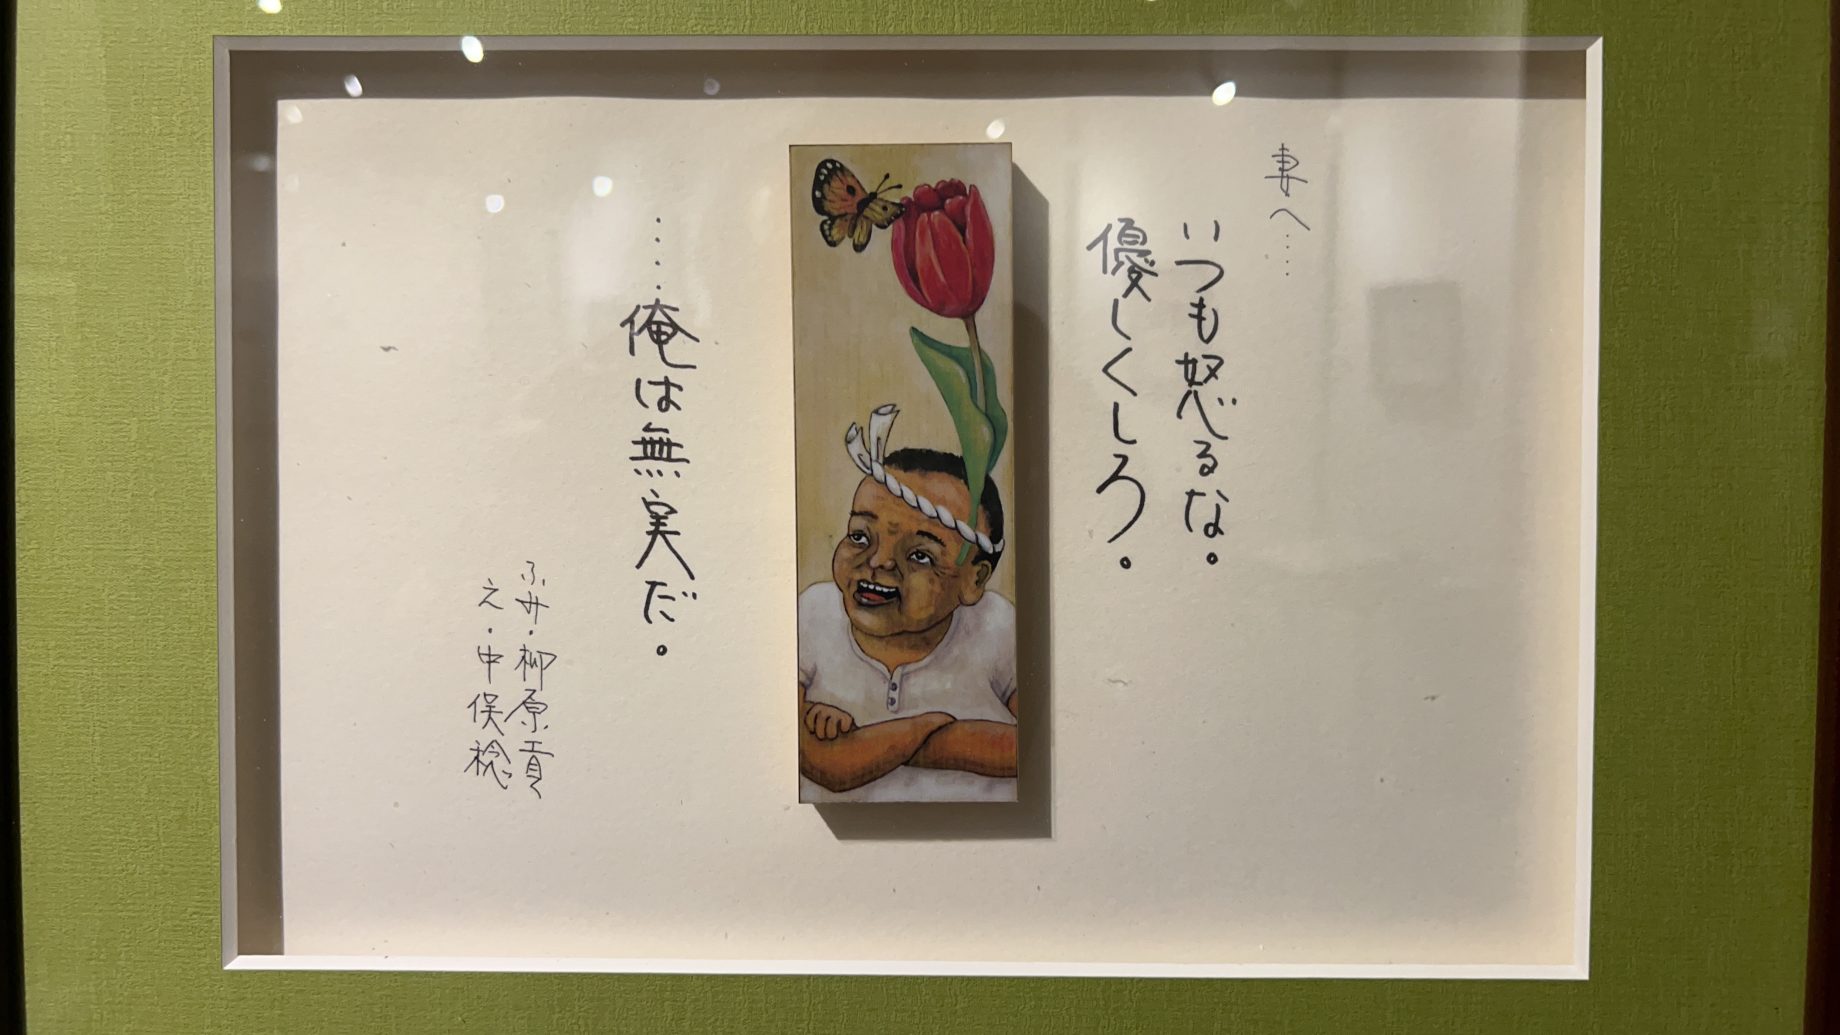 妻へ……
いつも怒るな。
優しくしろ。
……俺は無実だ。
ふみ・柳原貢
え・中俣稔